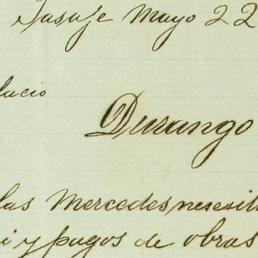 Tasaje Mayo 22
lucio
Durango
las Mercedes, necesit
i y pagos de obras